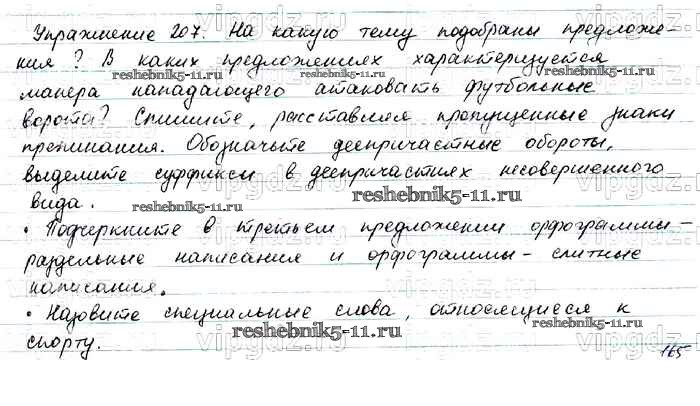 Упражнение 207. На какую тему подобраны предложе-
ния? В каких предложениях характеризуется
reshebnik5-11.ru reshebnik5-11.ru
манера нападающего атаковать футбольные
ворота? Спишите, расставляя пропущенные знаки
препинания. Обозначьте деепричастные обороты,
выделите суффиксы в деепричастиях несовершенного
вида. reshebnik5-11.ru reshebnik5-11.ru
• Подчеркните в третьем предложении орфограммы -
раздельные написания и орфограммы - слитные
написания.
• Назовите специальные слова, относящиеся к
спорту. reshebnik5-11.ru reshebnik5-11.ru
165
vipgdz.ru